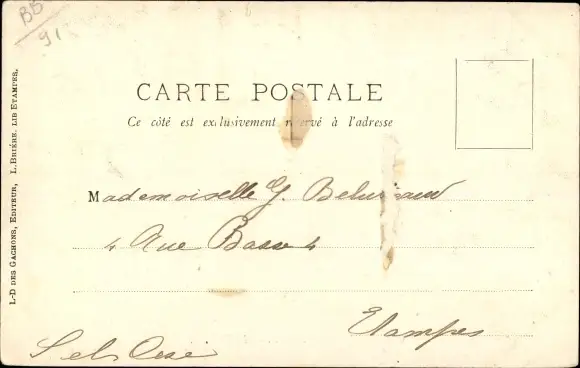 BB
91
CARTE POSTALE
Ce côté est exclusivement réservé à l'adresse
Mademoiselle G.
4 Rue Basse 4
Etampes
S et Oise
L.-D DES GACHONS, EDITEUR, L. BRIÈRE. LIB ETAMPES.